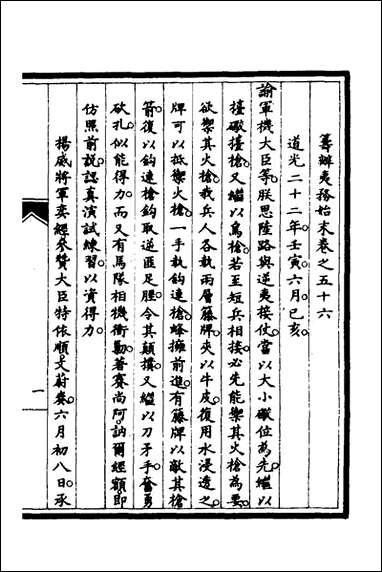 籌辦夷務始末卷之五十六
道光二十二年壬寅。六月。己亥。
諭軍機大臣等。朕思陸路與逆夷接仗。當以大小礮位為先。繼以
檯礮檯槍。又繼以鳥槍。若至短兵相接。必先能禦其火槍為要。
欲禦其火槍。我兵人各執兩層藤牌。夾以牛皮。復用水浸透之。
牌可以抵禦火槍。一手執鈎連槍。蜂擁前進。有藤牌以敵其槍
箭。復以鈎連槍鈎取逆匪足脛。令其顛撲。又繼以刀矛。手奮勇
砍扎。似能得力。而又有馬隊相機衝動。著賽尚阿。訥爾經額。即
仿照前說。認真演試練習。以資得力。
揚威將軍奕經參贊大臣特依順文蔚奏。六月初八日。承
一